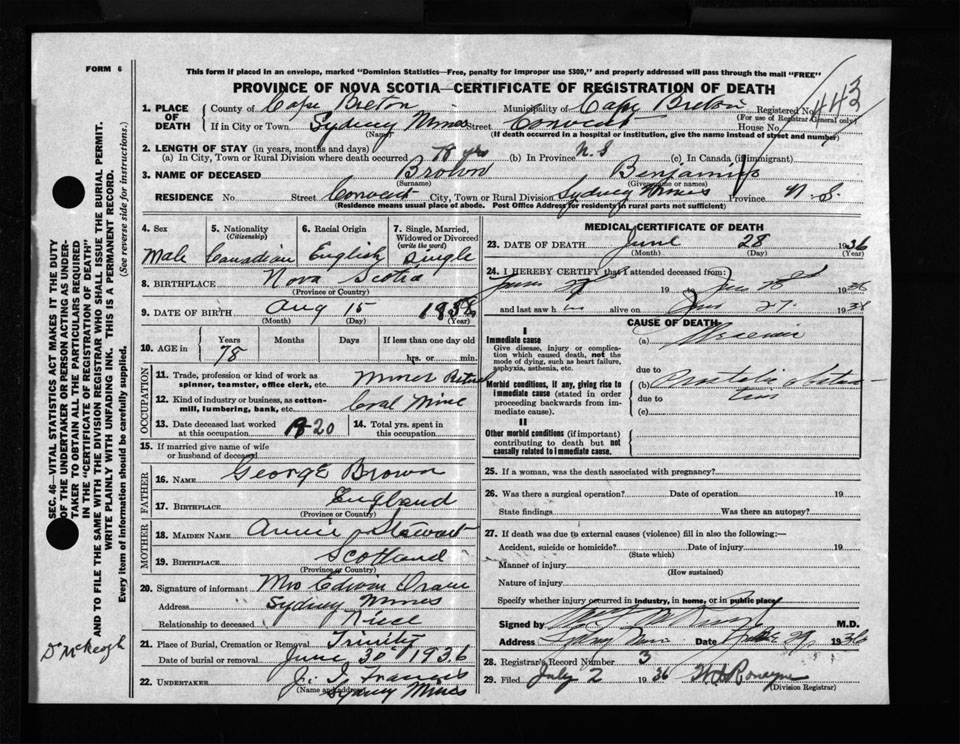 FORM 6
This form if placed in an envelope, marked "Dominion Statistics—Free, penalty for improper use $300," and properly addressed will pass through the mail "FREE"
PROVINCE OF NOVA SCOTIA—CERTIFICATE OF REGISTRATION OF DEATH
443
1. PLACE OF DEATH County of Cape Breton Municipality of Cape Breton Registered No.
(For use of Registrar General only)
If in City or Town Sydney Mines Street Convent House No.
(Name) (If death occurred in a hospital or institution, give the name instead of street and number)
2. LENGTH OF STAY (in years, months and days)
(a) In City, Town or Rural Division where death occurred 78 yrs (b) In Province N.S (c) In Canada (if immigrant)
3. NAME OF DECEASED Brown Benjamin
(Surname) (Given name or names)
RESIDENCE No. Street Convent City, Town or Rural Division Sydney Mines Province N.S.
(Residence means usual place of abode. Post Office Address for residents in rural parts not sufficient)
4. Sex Male
5. Nationality (Citizenship) Canadian
6. Racial Origin English
7. Single, Married, Widowed or Divorced (write the word) Single
8. BIRTHPLACE Nova Scotia
(Province or Country)
9. DATE OF BIRTH Aug 15 1858
(Month) (Day) (Year)
10. AGE in Years 78 Months Days If less than one day old
hrs. or min.
OCCUPATION
11. Trade, profession or kind of work as spinner, teamster, office clerk, etc. Miner Retired
12. Kind of industry or business, as cotton-mill, lumbering, bank, etc. Coal Mine
13. Date deceased last worked at this occupation 1920
14. Total yrs. spent in this occupation
15. If married give name of wife or husband of deceased
FATHER
16. NAME George Brown
17. BIRTHPLACE England
(Province or Country)
MOTHER
18. MAIDEN NAME Annie Stewart
19. BIRTHPLACE Scotland
(Province or Country)
20. Signature of informant Mrs Edwin
Address Sydney Mines
Relationship to deceased Niece
21. Place of Burial, Cremation or Removal Trinity
Date of burial or removal June 30 1936
22. UNDERTAKER J. Francis
(Name and address) Sydney Mines
MEDICAL CERTIFICATE OF DEATH
23. DATE OF DEATH June 28 1936
(Month) (Day) (Year)
24. I HEREBY CERTIFY that I attended deceased from:
19 to 1936
and last saw h im alive on June 27 1936
CAUSE OF DEATH
I
Immediate cause
Give disease, injury or complication which caused death, not the mode of dying, such as heart failure, asphyxia, asthenia, etc.
(a) Uraemia
due to
Morbid conditions, if any, giving rise to immediate cause (stated in order proceeding backwards from immediate cause).
(b)
due to
(c)
II
Other morbid conditions (if important) contributing to death but not causally related to immediate cause.
25. If a woman, was the death associated with pregnancy?
26. Was there a surgical operation? Date of operation 19
State findings Was there an autopsy?
27. If death was due to external causes (violence) fill in also the following:—
Accident, suicide or homicide? Date of injury 19
(State which)
Manner of injury
(How sustained)
Nature of injury
Specify whether injury occurred in industry, in home, or in public place
Signed by M.D.
Address Sydney Mines Date June 29, 1936
28. Registrar's Record Number 3
29. Filed July 2 1936
(Division Registrar)
SEC. 46—VITAL STATISTICS ACT MAKES IT THE DUTY OF THE UNDERTAKER OR PERSON ACTING AS UNDERTAKER TO OBTAIN ALL THE PARTICULARS REQUIRED IN THE "CERTIFICATE OF REGISTRATION OF DEATH" AND TO FILE THE SAME WITH THE DIVISION REGISTRAR WHO SHALL ISSUE THE BURIAL PERMIT.
WRITE PLAINLY WITH UNFADING INK. THIS IS A PERMANENT RECORD.
Every item of information should be carefully supplied. (See reverse side for instructions.)
Dr McKeogh